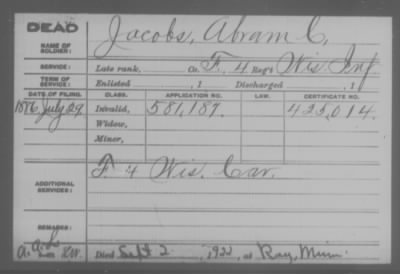 DEAD
NAME OF SOLDIER: Jacobs, Abram C.
SERVICE: Late rank, Co. F, 4 Reg't Wis. Inf
TERM OF SERVICE: Enlisted , 1 Discharged , 1
DATE OF FILING. CLASS. APPLICATION NO. LAW. CERTIFICATE NO.
1886, July 29 Invalid, 581,187. 425,014.
Widow,
Minor,
F 4 Wis. Cav.
ADDITIONAL SERVICES:
REMARKS:
Died Sept 2, 192 , at Ray, Minn.